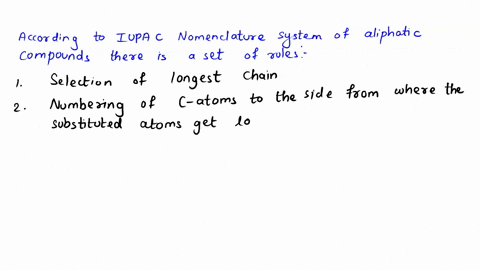 According to IUPAC Nomenclature system of aliphatic
Compounds there is a set of rules:-
1. Selection of longest Chain
2. Numbering of C-atoms to the side from where the
substituted atoms get lo